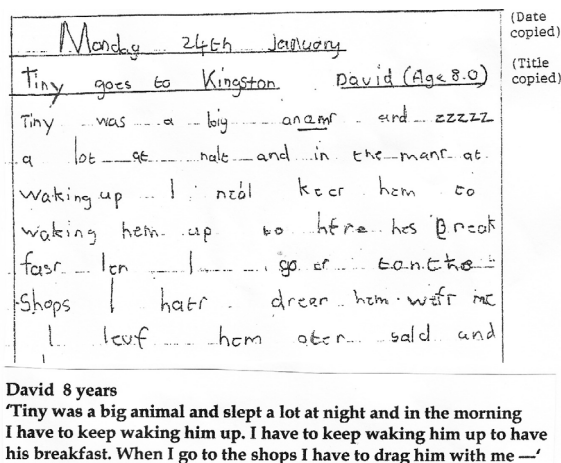 Monday 24th January
(Date copied)
Tiny goes to Kingston David (Age 8.0)
(Title copied)
Tiny was a big anamr and zzzzz
a lot at nalt and in the manr at
waking up I keer hem to
waking hem up to hes Break
fasr I go tonthe
Shops I hatr hem me
I leuf hem ater sald and
David 8 years
‘Tiny was a big animal and slept a lot at night and in the morning
I have to keep waking him up. I have to keep waking him up to have
his breakfast. When I go to the shops I have to drag him with me —‘